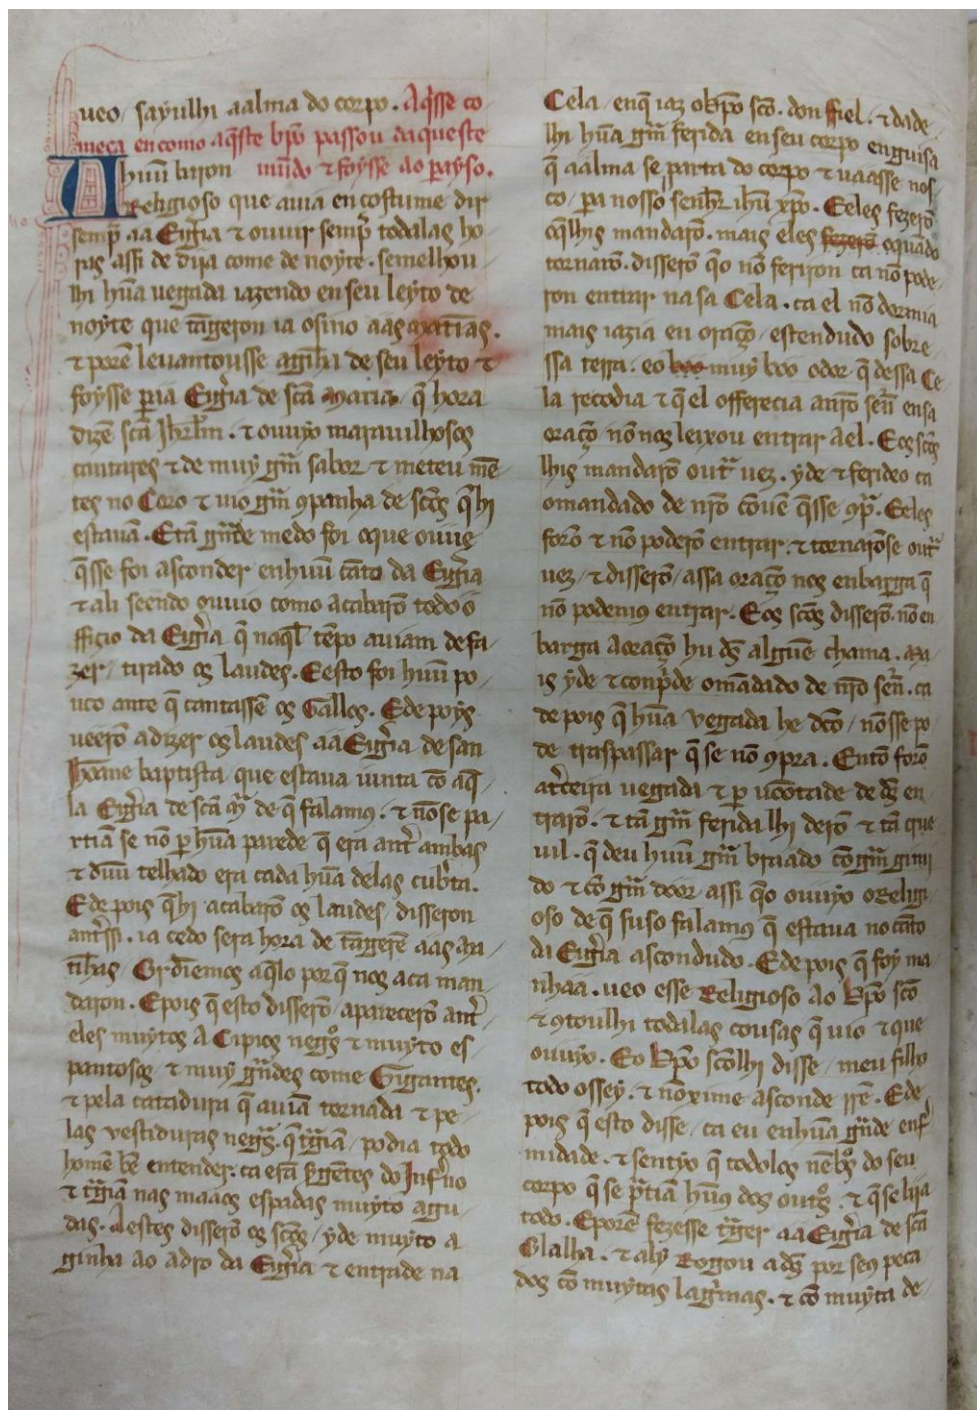 ueo / sayulhi aalma do corpo . Aq̃sse co
meça en como aq̃ste bp̃o passou daqueste
hũu baron mũdo ⁊ foysse ao parayso.
Religioso que auia en costume dir
semp̃ aa Eigr̃ia ⁊ ouuir semp̃ todalas ho
ras assi de dira come de noyte . semelhou
lhi hũa uegada iazendo en seu leyto de
noyte que tãgeron ia osino aas matĩas .
⁊ porẽ leuantousse agĩha de seu leyto ⁊
foysse pera Eigr̃ia de sc̃a Maria q̃ hora
dizẽ sc̃a Jhrl̃m . ⁊ ouuyo marauilhosos
cantares ⁊ de muy gr̃m sabor ⁊ meteu mẽ
tes no Coro ⁊ uio gr̃m ꝯpanha de sc̃os q̃ hi
estauã . E tã gr̃nde medo foi oque ouue
q̃sse foi asconder en hũu cãto da Eigr̃ia
⁊ ali seendo ouuio como acabarõ todo o
fficio da Eigr̃ia q̃ naq̃l tẽpo auiam de fa
zer / tirado os laudes . E esto foi hũu po
uco ante q̃ cantassẽ os Gallos . E de poys
ueerõ a dizer os laudes aa Eigr̃ia de san
Johane baptista / que estaua iunta cõ aq̃
la Eigr̃ia de sc̃a Mª de q̃ falamus . ⁊ nõ se pa
rtiã se nõ p̱ hũa parede q̃ era ant̃ ambas
⁊ dũu telhado era cada hũa delas cub̃ta .
E de pois q̃ hi acabarõ os laudes / disseron
ant̃ssi . ia cedo sera hora de tãgerẽ aas ma
tĩhas . Ordĩemos aq̃lo por q̃ nos aca man
daron . E pois q̃ esto disserõ . aparecerõ ant̃
eles muytos a Cipios neg̃os ⁊ muyto es
pantosos ⁊ muy gr̃ndes come Gigantes .
⁊ pela catadura q̃ auiã tornada ⁊ pe
las vestiduras neg̃s . q̃ tr̃giã / podia todo
homẽ bẽ entender . ca erã s̃gẽtes do Inf̃no
⁊ tr̃giã nas maãos espadas muyto agu
das . A estes disserõ os sc̃os / yde muyto a
ginha ao adro da Eigr̃ia ⁊ entrade na
Cela / en q̃ iaz o bp̃o sc̃o . don ffiel . ⁊ dade
lhi hũa gr̃m ferida en seu corpo en guisa
q̃ aalma se parta do corpo ⁊ uaasse nos
co / pa nosso senhr̃ ihũ xp̃o . E eles fezerõ
oq̃lhis mandarõ . mais eles fezerõ oquãdo
tornarõ . disserõ q̃o nõ feriron ca nõ pode
ron entrar na sa Cela . ca el nõ dormia
mais iazia en oraçõ / estendudo sobre
ssa terra . eo boo muy boo odor q̃ dessa Ce
la recodia ⁊ q̃ el offerecia a nr̃o sẽn en sa
oraçõ nõ nos leixou entrar a el . E os sc̃os
lhis mandarõ outr̃ uez . yde ⁊ ferideo ca
o mandado de nr̃o cõuẽ q̃sse ꝯp̃ . E eles
forõ ⁊ nõ poderõ entrar . ⁊ tornarõse outr̃
uez / ⁊ disserõ / assa oraçõ nos enbarga q̃
nõ podemus entrar . E os sc̃os disserõ . nõ en
barga a oraçõ hu d̃s alguẽ chama . Ma
is yde ⁊ conp̃de o mãdado de nr̃o sẽn . ca
de pois q̃ hũa vegada he dc̃o / nõ sse po
de traspassar q̃ se nõ ꝯpra . Entõ forõ
a t̃ceira uegada ⁊ p̱ uõtade de d̃s en
trarõ . ⁊ tã gr̃m ferida lhi derõ ⁊ tã que
uil . q̃ deu hũu gr̃m braado cõ gr̃m gimi
do ⁊ cõ gr̃m door . assi q̃o ouuyo o Religi
oso de q̃ suso falamus q̃ estaua no cãto
da Eigr̃ia ascondudo . E de pois q̃ foy ma
nhaa . ueo esse Religioso ao bp̃o sc̃o
⁊ ꝯtoulhi todalas cousas q̃ uio ⁊ que
ouuyo . E o bp̃o sc̃o lhi disse / meu filho
todo o ssey . ⁊ nõ xi me asconde rrẽ . E de
pois q̃ esto disse / ca eu en hũa gr̃nde enf̃
midade . ⁊ sentyo q̃ todolos nẽb̃os do seu
corpo q̃ se p̃tiã hũus dos out̃os . ⁊ q̃ se hia
todo . E porẽ fezesse tr̃ger aa Eigr̃ia de sc̃a
Olalha . ⁊ aly Rogou a d̃s por seus peca
dos cõ muytas lag̃mas . ⁊ cõ muyta de